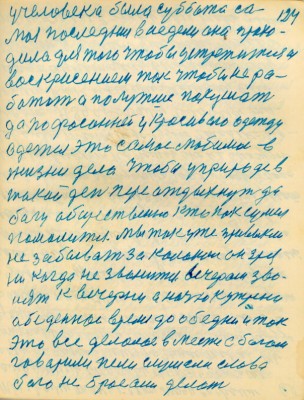 124
у человека была суббота са-
мы последни в недели она прохо-
дила для того чтобы устретится и
воскрисением так чтобы не ра-
ботат а получше покушат
да по красивей
одетса это самое любимое в
жизни дело чтобы и природе в
такой ден передыхнут да
богу общественно кто как сумел
помолитса мы так уже привыкли
не забыват за колокол он зря
ни когда не звонит вечером зво-
нит к вечерни а на то к утрени
обеденное время до обедни и так
это все делалос в месте с богом
говорили пели слушали слова
бога не бросали делат